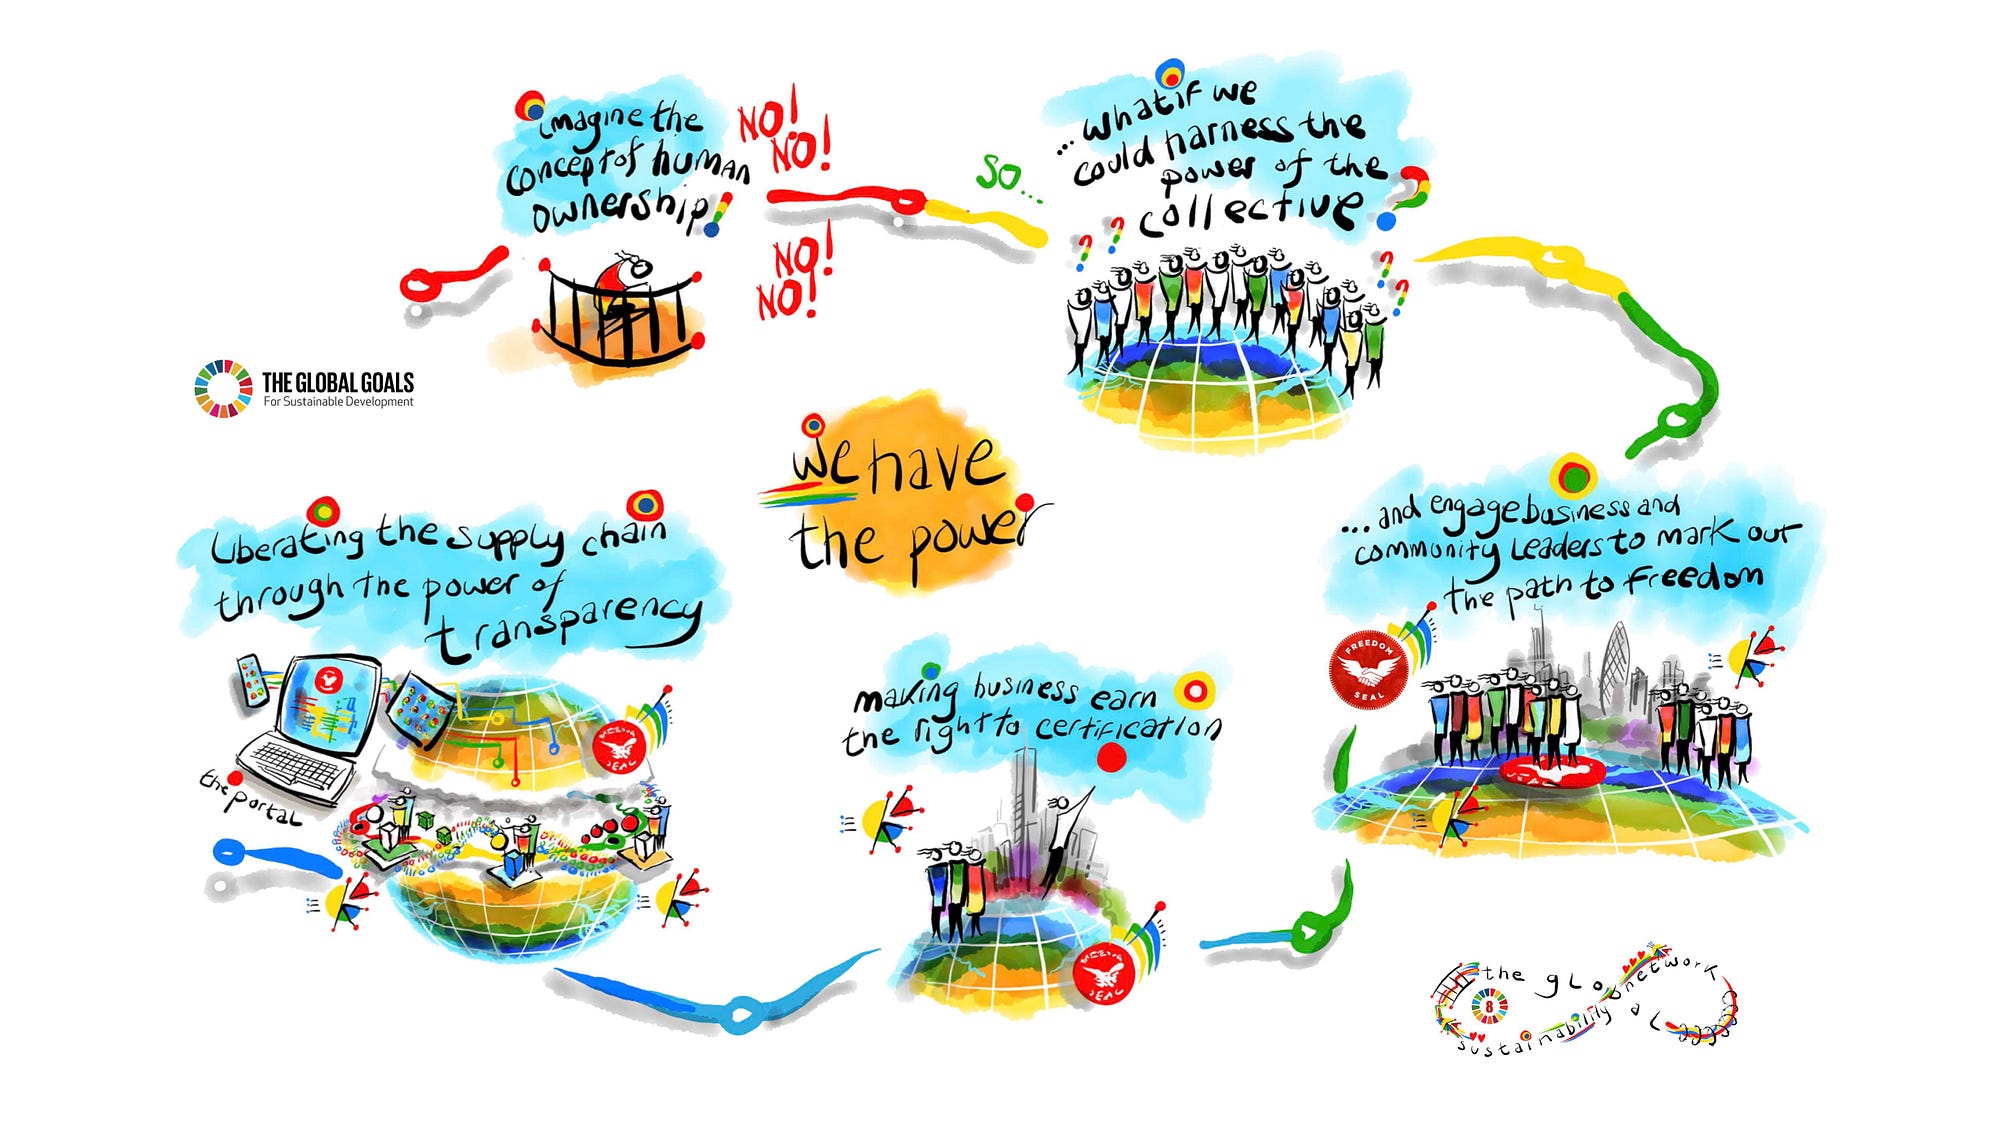 imagine the
concept of human
ownership!
NO!
NO!
NO!
NO!
SO...
...what if we
could harness the
power of the
collective?
THE GLOBAL GOALS
For Sustainable Development
we have
the power
...and engage business and
community leaders to mark out
the path to freedom
FREEDOM
SEAL
making business earn
the right to certification
SEAL
Liberating the supply chain
through the power of
transparency
SEAL
the portal
the global
network
8
sustainability